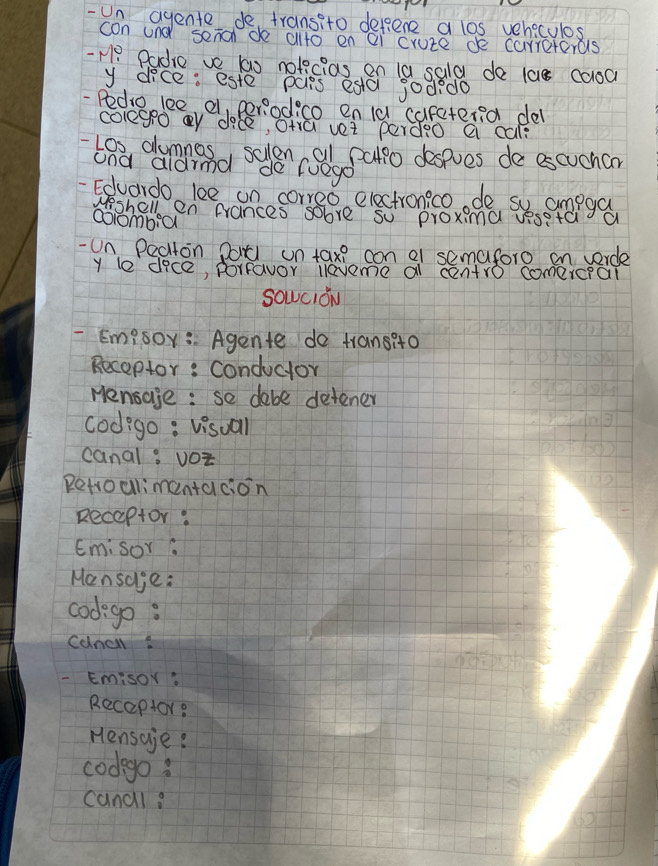 -Un agente de transito detiene a los vehiculos
con una señal de alto en el cruze de carreteras
-Mi Padre ve las noticias en la sala de la casa
y dice: este pais está jodido
-Pedro lee el periodico en la cafeteria del
colegio y dice, otra vez perdio el cali
-Los alumnos salen al patio despues de escuchar
una alarma de fuego
-Eduardo lee un correo electronico de su amiga
Mishell en frances sobre su proxima visita a
colombia
-Un Peaton para un taxi con el semaforo en verde
y le dice, porfavor lleveme al centro comercial
SOLUCIÓN
- Emisor: Agente de transito
Receptor: conductor
Mensaje: se debe detener
codigo: visual
canal: voz
Retroalimentación
Receptor:
Emisor:
Mensaje:
codigo:
canal:
- Emisor:
Receptor:
Mensaje:
codigo:
canal: